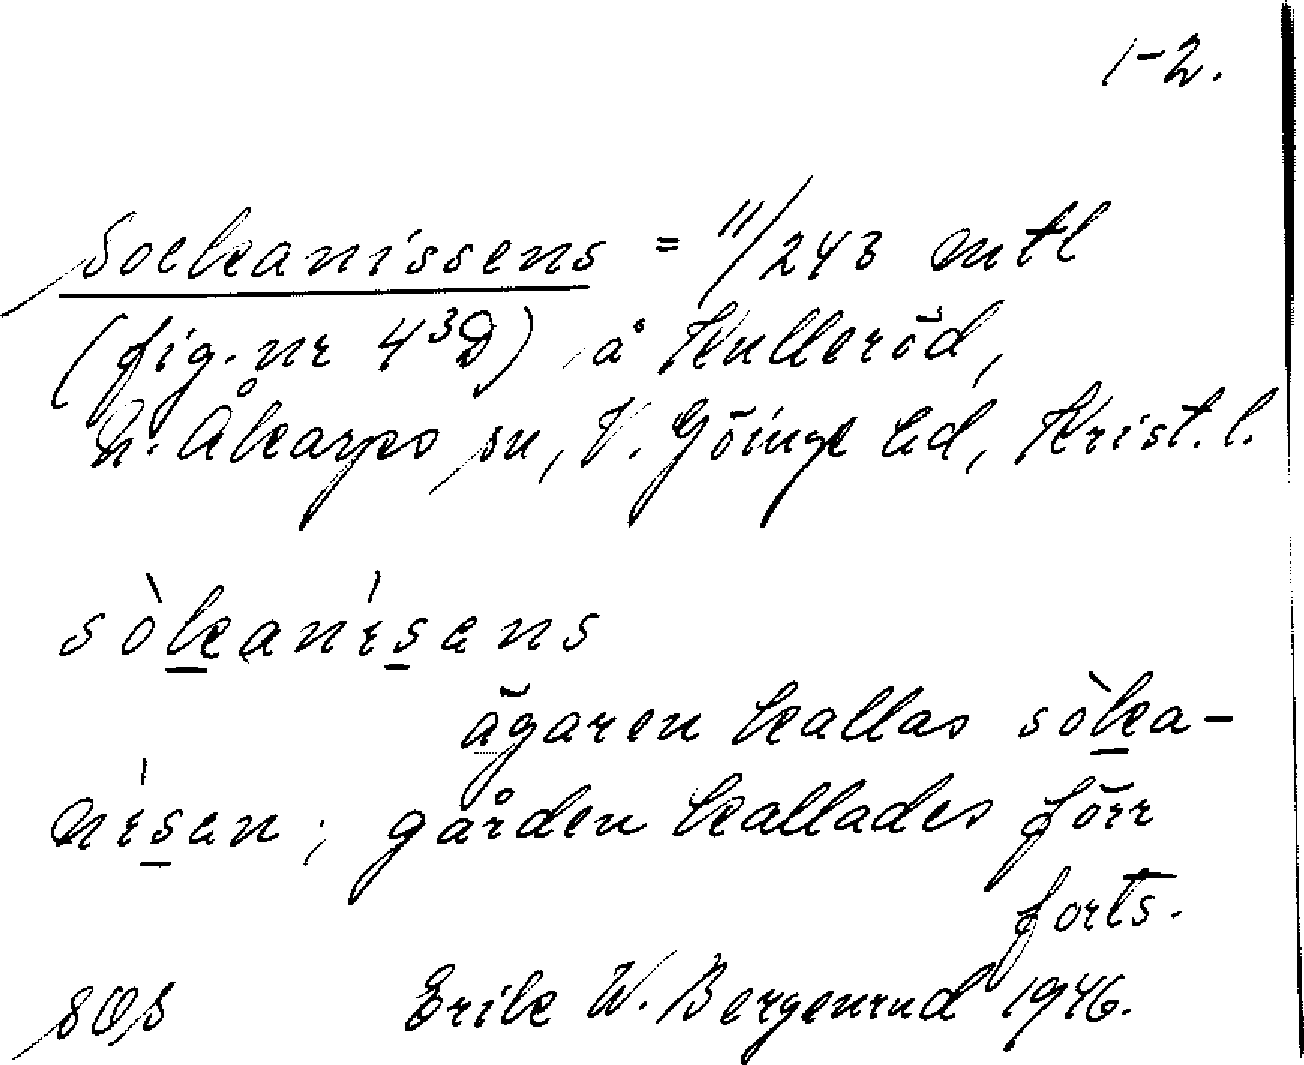 1-2.
Sockanissens = 11/243 mtl
(fig. nr 4³D) å Hulleröd,
N. Åkarps sn, V. Göinge hd, Krist. l.
sòkanísans
ägaren kallas sòka-
nísan; gården kallades förr
forts.
Erik W. Bergenrud 1946.